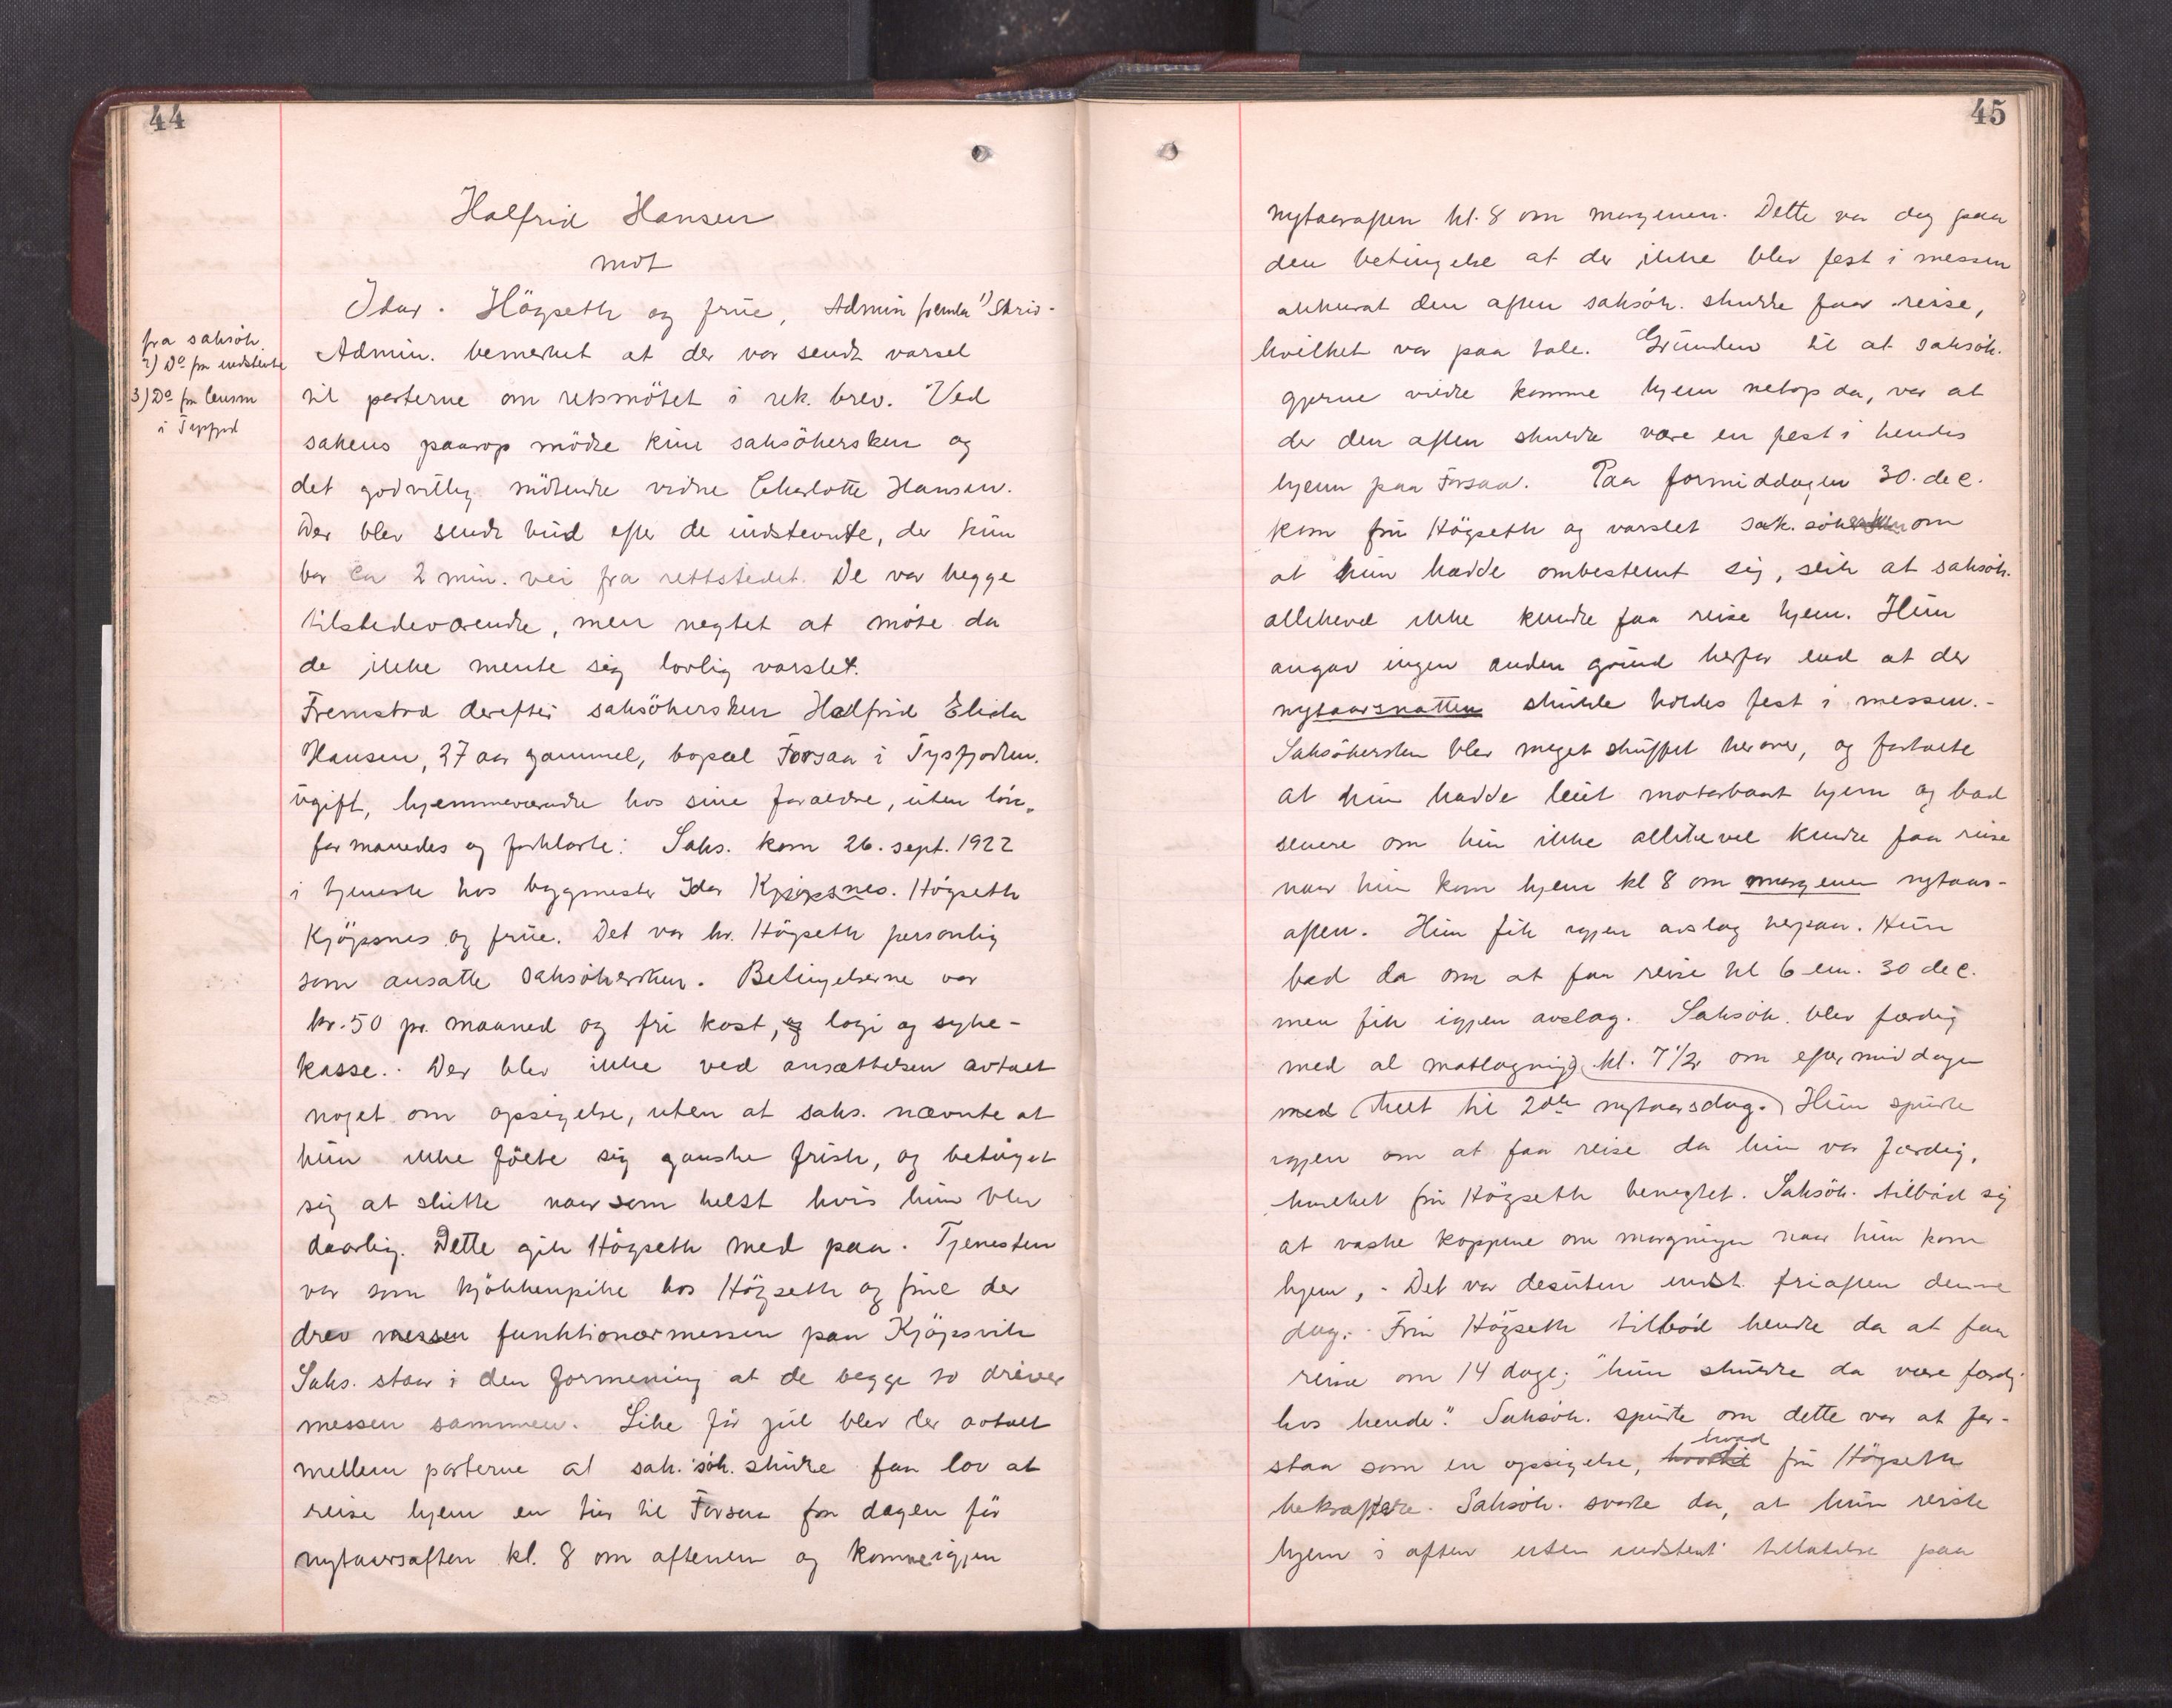 44
Halfrid Hansen
mot
Idar. Högseth og frue, Admin fremla 1) Skriv-
fra saksök.
2) Do fra indstevnte
3) Do fra lensm
i Tysfjord
Admin. bemerket at der var sendt varsel
til parterne om retsmötet i rek. brev. Ved
sakens paarop mödte kun saksökersken og
det godvillig mötende vidne Charlotte Hansen.
Der blev sendt bud efter de indstevnte, der kun
bor ca 2 min. vei fra rettstedet. De var begge
tilstedeværende, men negtet at möte da
de ikke mente sig lovlig varslet.
Fremstod derefter saksökersken Halfrid Elida
Hansen, 27 aar gammel, bopæl Forsaa i Tysfjorden.
ugift, hjemmeværende hos sine forældre, uten lön,
formanedes og forklarte: Saks. kom 26. sept. 1922
i tjeneste hos bygmester Idar Kjöpsnes. Högseth
Kjöpsnes og frue. Det var hr. Högseth personlig
som ansatte saksökersken. Betingelserne var
kr. 50 pr. maaned og fri kost, og logi og syke-
kasse. Der blev ikke ved ansættelsen avtalt
noget om opsigelse, uten at saks. nævnte at
hun ikke fölte sig ganske frisk, og betinget
sig at slutte naarsom helst hvis hun blev
daarlig. Dette gik Högseth med paa. Tjenesten
var som kjökkenpike hos Högseth og frue der
drev messen funktionærmessen paa Kjöpsvik
Saks. staar i den formening at de begge to driver
messen sammen. Like för jul blev der avtalt
mellem parterne at sak. sök. skulde faa lov at
reise hjem en tur til Forsaa fra dagen för
nytaarsaften kl. 8 om aftenen og komme igjen
45
nytaarsaften kl. 8 om morgenen. Dette var dog paa
den betingelse at der ikke blev fest i messen
akkurat den aften saksök. skulde faar reise,
hvilket var paa tale. Grunden til at saksök.
gjerne vilde komme hjem netop da, var at
der den aften skulde være en fest i hendes
hjem paa Forsaa. Paa formiddagen 30. dec.
kom fru Högseth og varslet sak. sökersken om
at hun hadde ombestemt sig, slik at saksök.
allikevel ikke kunde faa reise hjem. Hun
angav ingen anden grund herfor end at der
nytaarsnatten skulde holdes fest i messen.-
Saksökersken blev meget skuffet herover, og fortalte
at hun hadde leiet motorbaat hjem og bad
senere om hun ikke allikevel kunde faa reise
naar hun kom hjem kl 8 om morgenen nytaars-
aften. Hun fik igjen avslag herpaa. Hun
bad da om at faa reise kl 6 em. 30 dec.
men fik igjen avslag. Saksök. blev færdig
med al matlagning kl. 7 1/2 om eftermiddagen
med (helt til 2den nytaarsdag.) Hun spurte
igjen om at faa reise da hun var færdig,
hvilket fru Högseth benegtet. Saksök. tilböd sig
at vaske koppene om morgningen naar hun kom
hjem, - Det var desuten indst. friaften denne
dag. - Fru Högseth tilböd hende da at faa
reise om 14 dage; "hun skulde da være færdig
hos hende". Saksök. spurte om dette var at for-
staa som en opsigelse, hvad fru Högseth
bekræftede. Saksök. svarte da, at hun reiste
hjem i aften uten indstevnt tillatelse paa